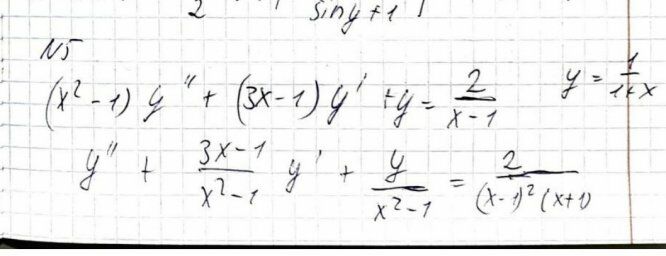 2 sin y + 1
N5
(x² - 1) y'' + (3x - 1) y' + y = 2/(x - 1) y = 1/(1 + x)
y'' + (3x - 1)/(x² - 1) y' + y/(x² - 1) = 2/((x - 1)² (x + 1))